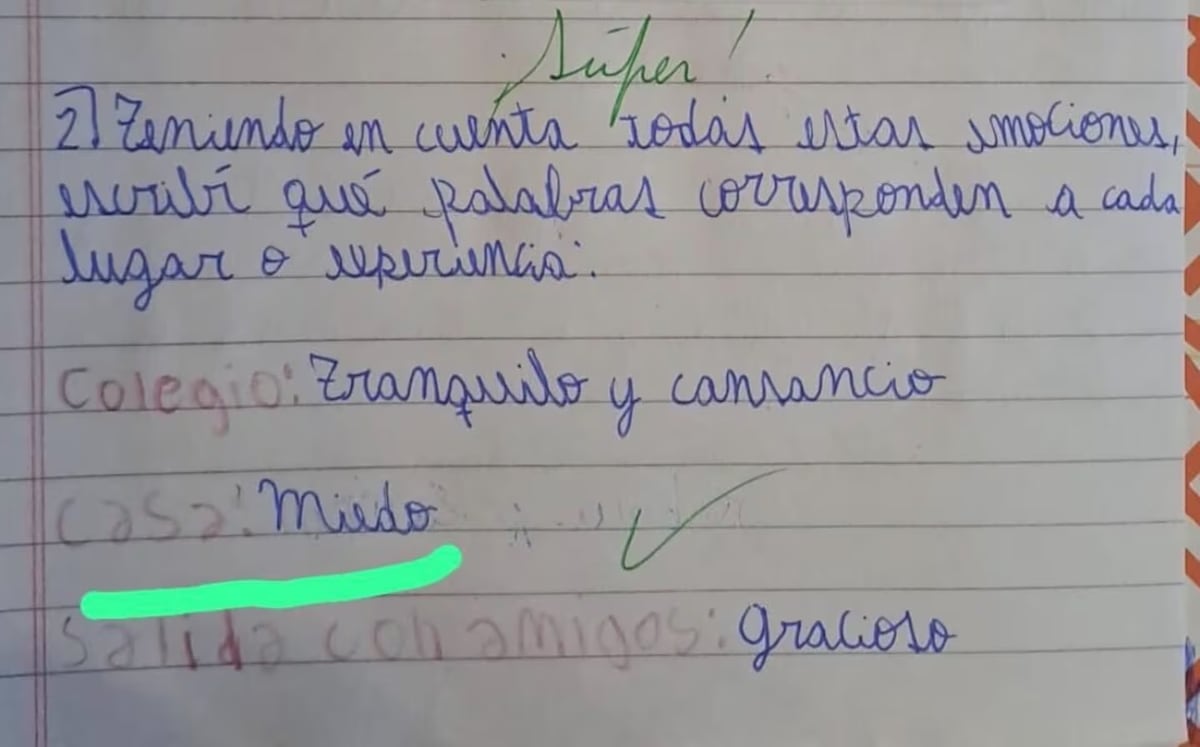 Súper!
2) Teniendo en cuenta todas estas emociones,
escribí qué palabras corresponden a cada
lugar o experiencia:
Colegio: Tranquilo y cansancio
Casa: Miedo
Salida con amigos: gracioso